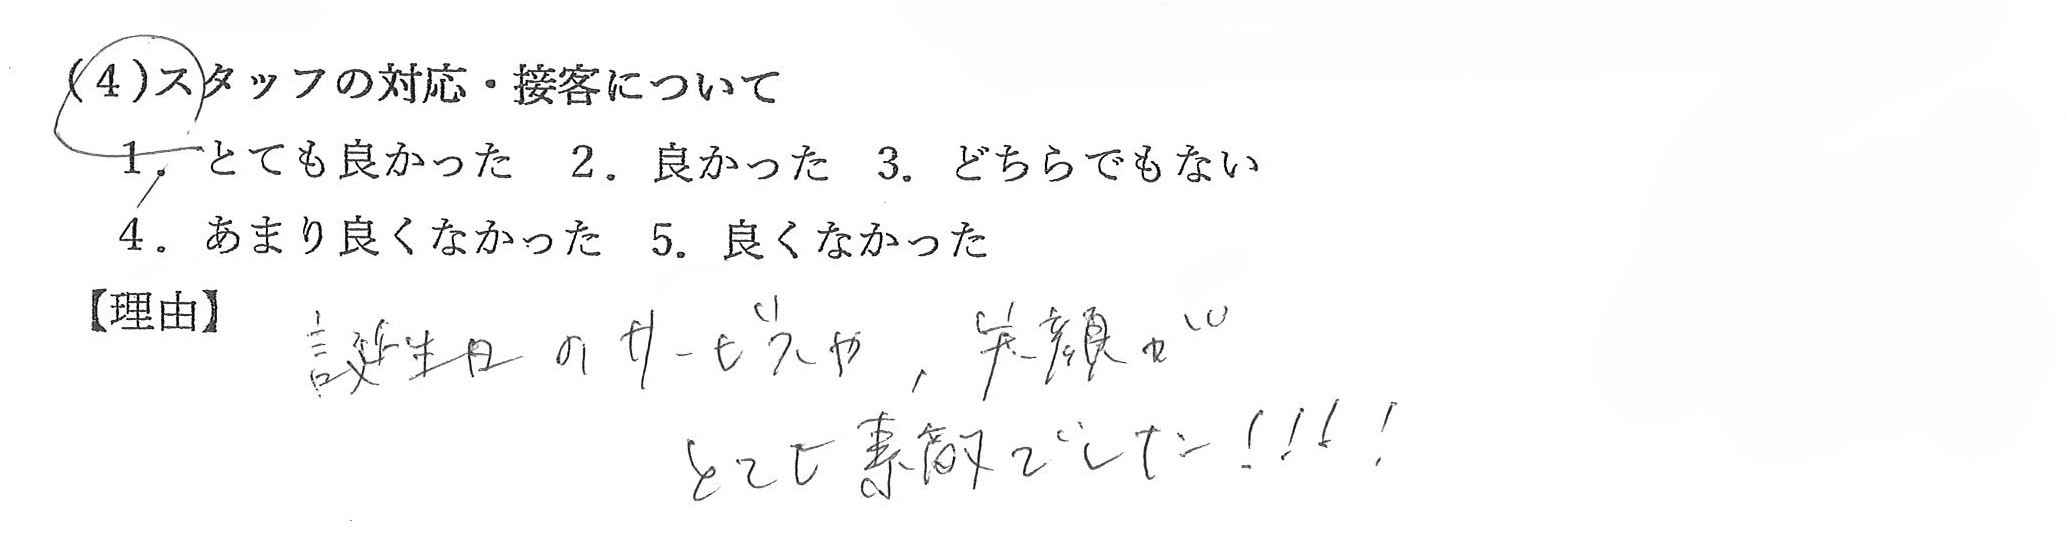 (4)スタッフの対応・接客について
1. とても良かった 2. 良かった 3. どちらでもない
4. あまり良くなかった 5. 良くなかった
【理由】
誕生日のサービスや，笑顔が
とても素敵でした!!!!